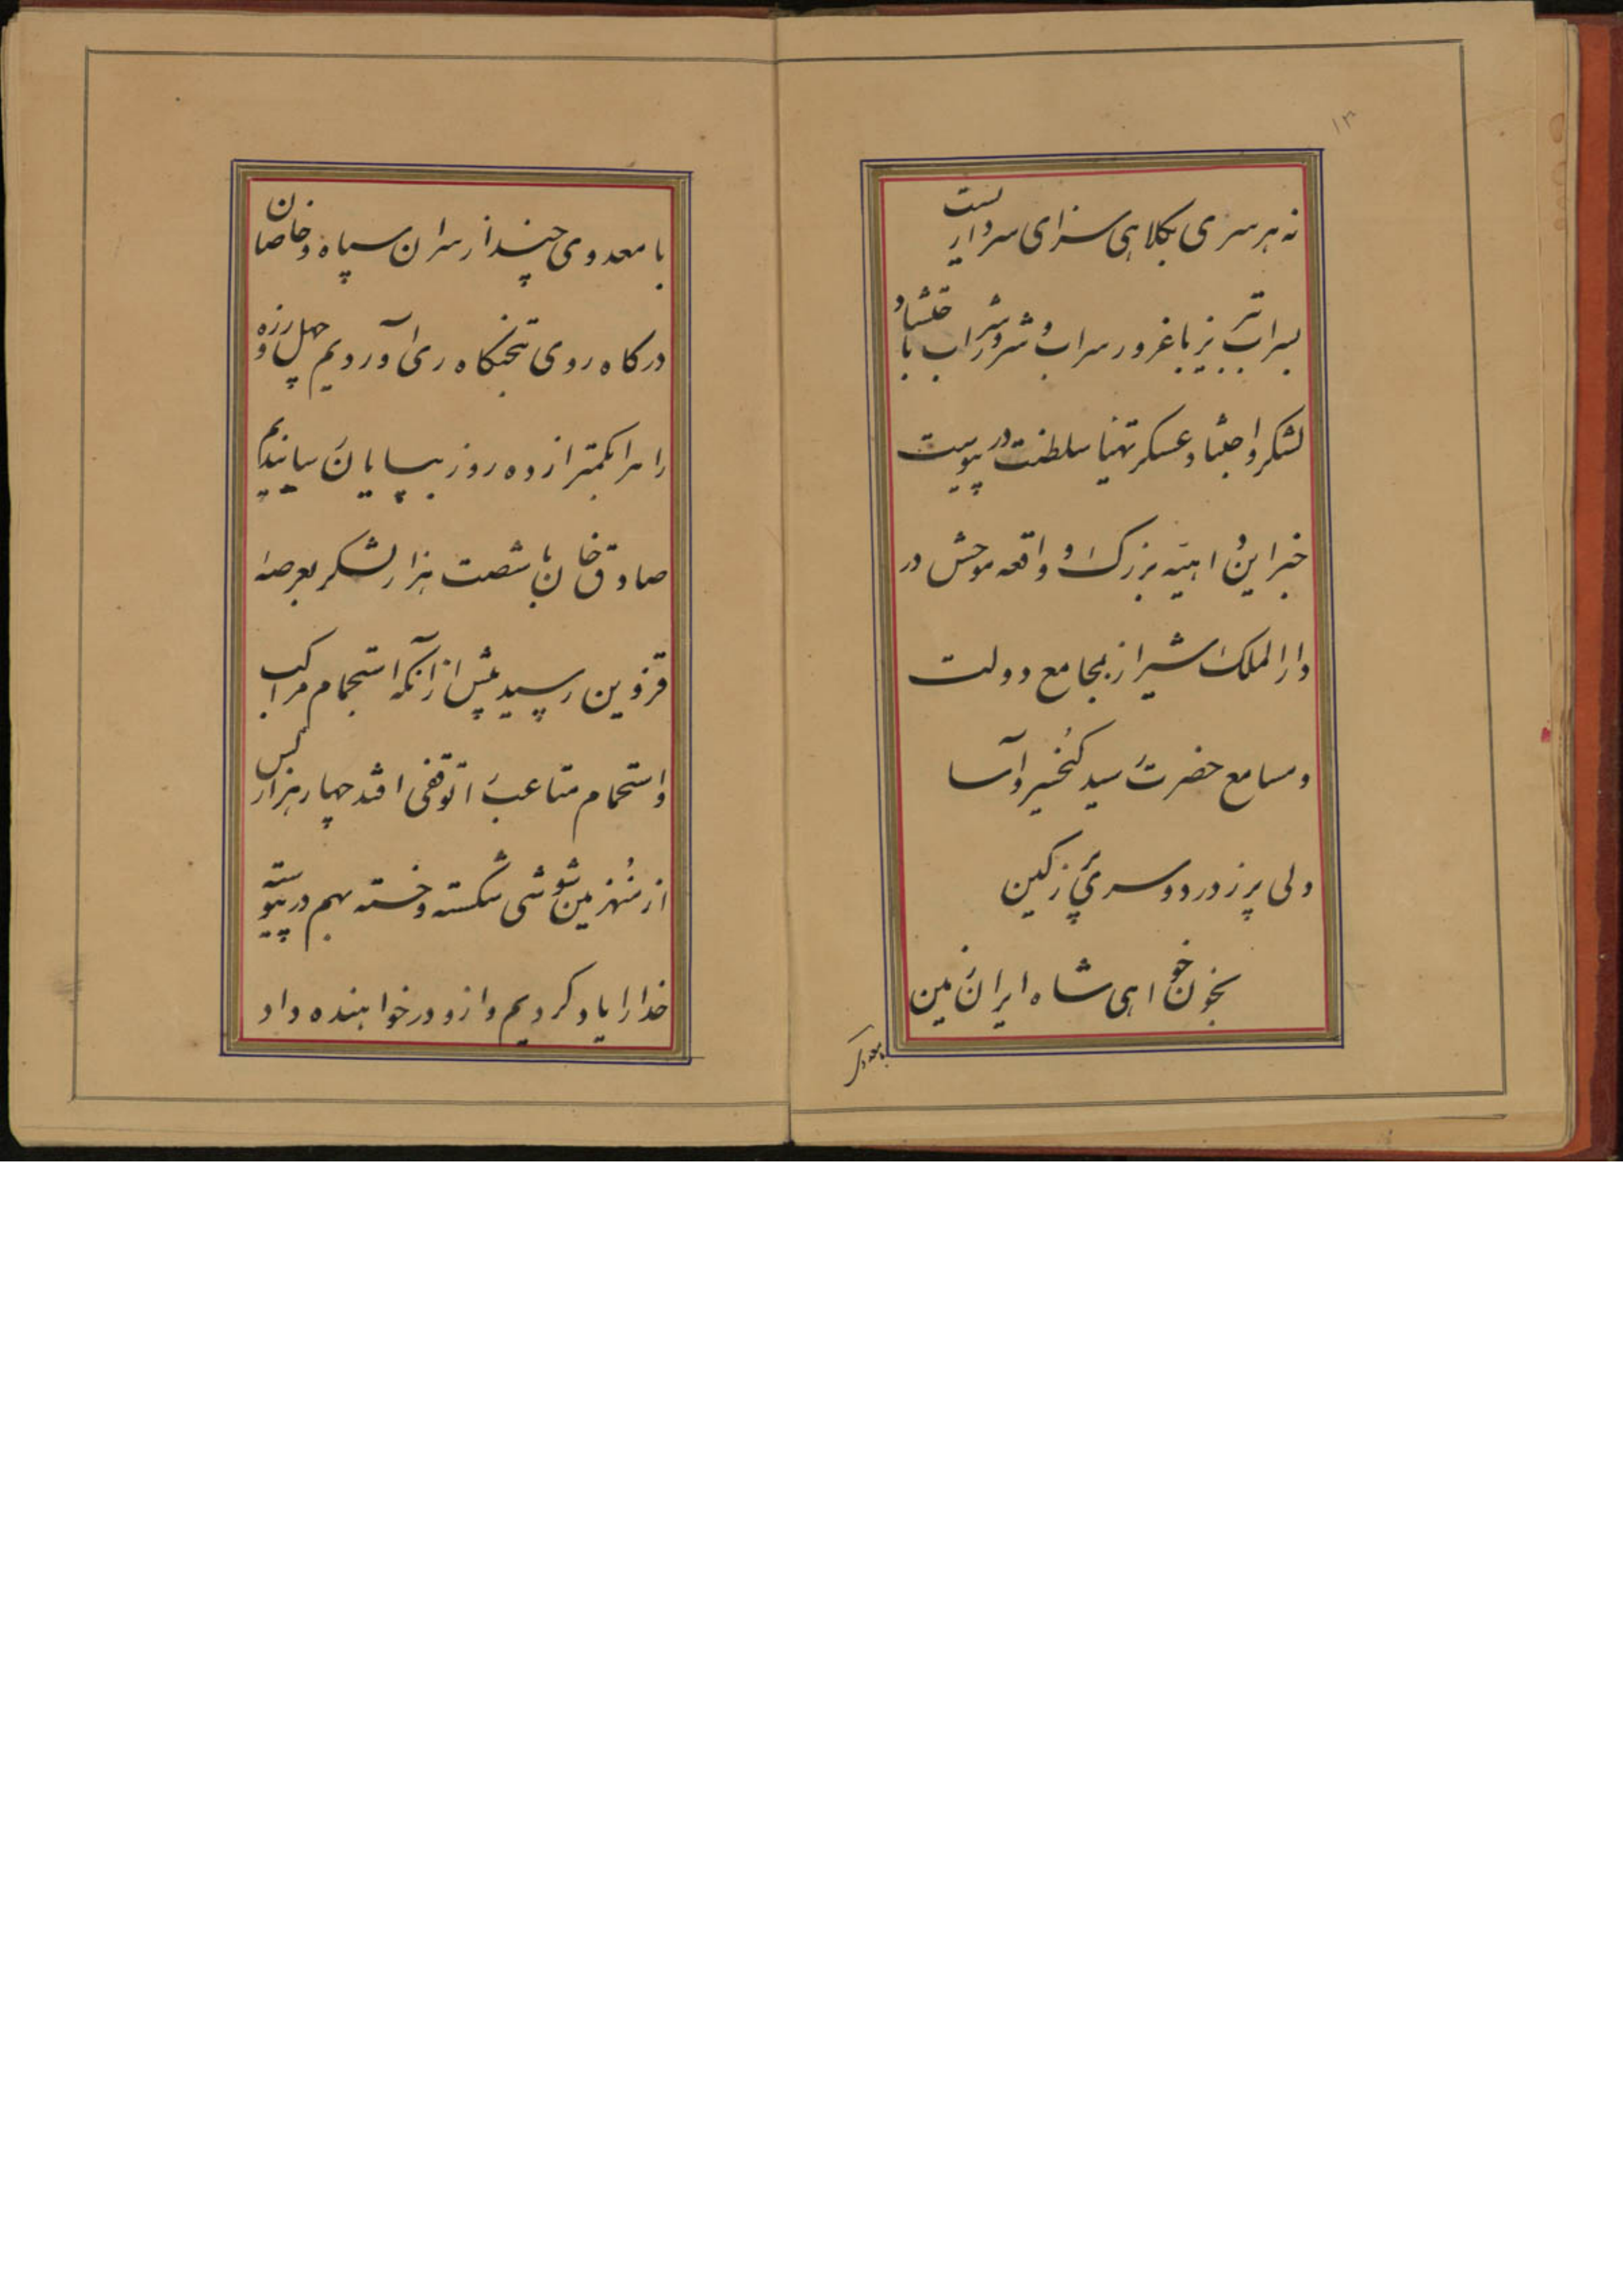 ۱۳
نه هر سری بکلاهی سزای سرداریست
بسراب تبریز با غرور سراب و شرور شراب با
لشکر و احتشاد عسکر تهنیا سلطنت در پیوست
خبر این داهیه بزرک و واقعه موحش در
دار الملک شیراز بمجامع دولت
و مسامع حضرت رسید کیخسرو آسا
دلی پر ز درد و سری پر ز کین
بخون خواهی شاه ایران زمین
با معدودی چند از سران سپاه و خاصان
درکاه روی بتختکاه ری آوردیم چهل روزه
راه را بکمتر از ده روز بپایان رسانیدیم
صادق خان با شصت هزار لشکر بعرصه
قزوین رسید پیش از آنکه استجمام مراکب
و استحمام متاعب را توقفی افتد چهار هزار کس
از منهزمین شقاقی شکسته و خسته بهم در پیوسته
خدا را یاد کردیم و از داور خواهنده داد